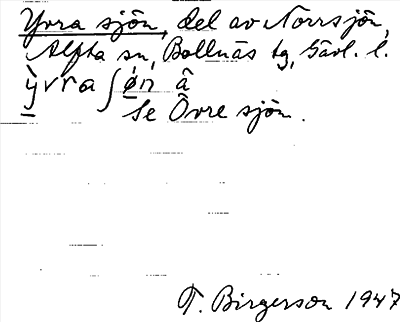 Yvra sjön, del av Norrsjön,
Alfta sn, Bollnäs tg, Gävl. l.
ỳ̠vra ʃø̠̀n â
Se Övre sjön.
T. Birgerson 1947